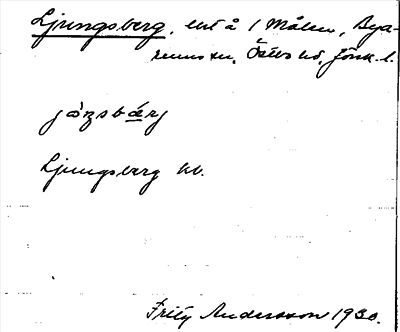 Ljungsberg, ent å 1 Målen, Bya-
rums sn, Östbo hd, Jönk. l.
jåŋsbærj
Ljungsberg kb.
Fritz Andersson 1930.